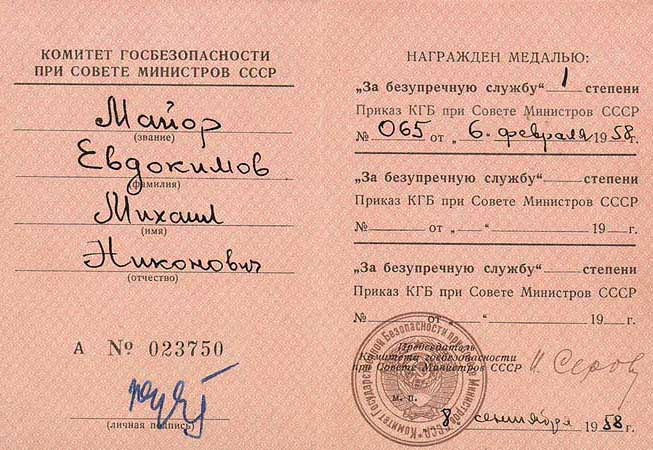 КОМИТЕТ ГОСБЕЗОПАСНОСТИ
ПРИ СОВЕТЕ МИНИСТРОВ СССР
Майор
(звание)
Евдокимов
(фамилия)
Михаил
(имя)
Никонович
(отчество)
А № 023750
(личная подпись)
НАГРАЖДЕН МЕДАЛЬЮ:
„За безупречную службу“ 1 степени
Приказ КГБ при Совете Министров СССР
№ 065 от „6. февраля 1958г.
„За безупречную службу“ степени
Приказ КГБ при Совете Министров СССР
№ от „ “ 19 г.
„За безупречную службу“ степени
Приказ КГБ при Совете Министров СССР
№ от „ “ 19 г.
Председатель
Комитета госбезопасности
при Совете Министров СССР И. Серов
М. П.
8 сентября 1958г.